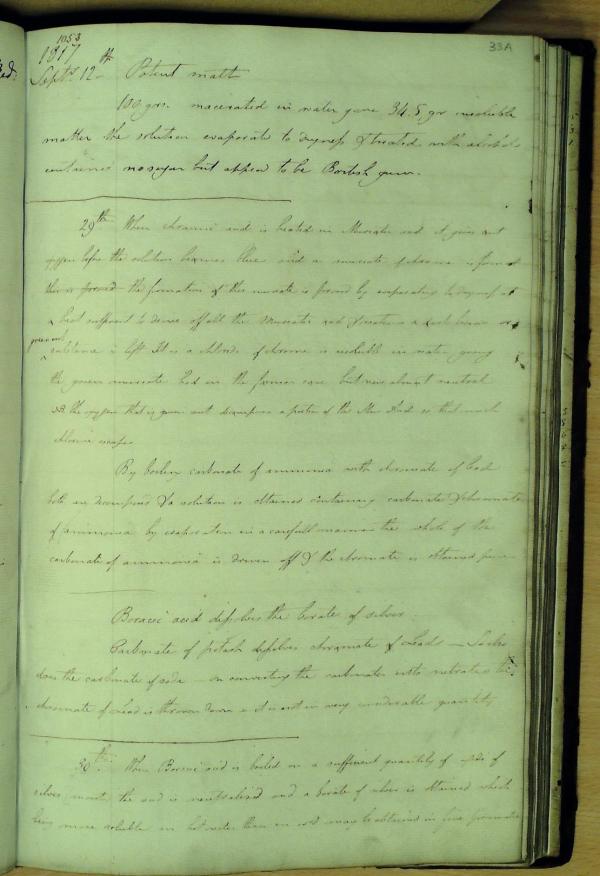 33A
1053
1817
Septr 12th Patent malt
100 grs. macerated in water gave 34.5 gr insoluble
matter the solution evaporated to dryness & treated with alcohol
contained no sugar but appeared to be British gum.
29th When chromic acid is heated in Muriatic acid it gives out
oxygen before the solution becomes blue and a muriate of chrome is formed
this is formed the formation of this muriate is proved by evaporating to dryness at
a heat sufficient to drive off all the Muriatic acid & water a dark brown or
green
substance is left It is a chloride of chrome is insoluble in water giving
the green muriate but in the former case but now almost neutral
NB the oxygen that is given out decomposes a portion of the Mur Acid so that much
chlorine escapes
By boiling carbonate of ammonia with chromate of lead
both are decomposed & a solution is obtained containing carbonate & chromate
of ammonia by evaporation in a carefull manner the whole of the
carbonate of ammonia is driven off & the chromate is obtained pure
Boracic acid dissolves the borate of silver
Carbonate of potash dissolves chromate of lead — So also
does the carbonate of soda — on converting the carbonates into nitrates the
chromate of lead is thrown down & it is not in very considerable quantity
30th When Boracic acid is boiled on a sufficient quantity of oxide of
silver moist the acid is neutralised and a borate of silver is obtained which
being more soluble in hot water than in cold may be obtained in fine